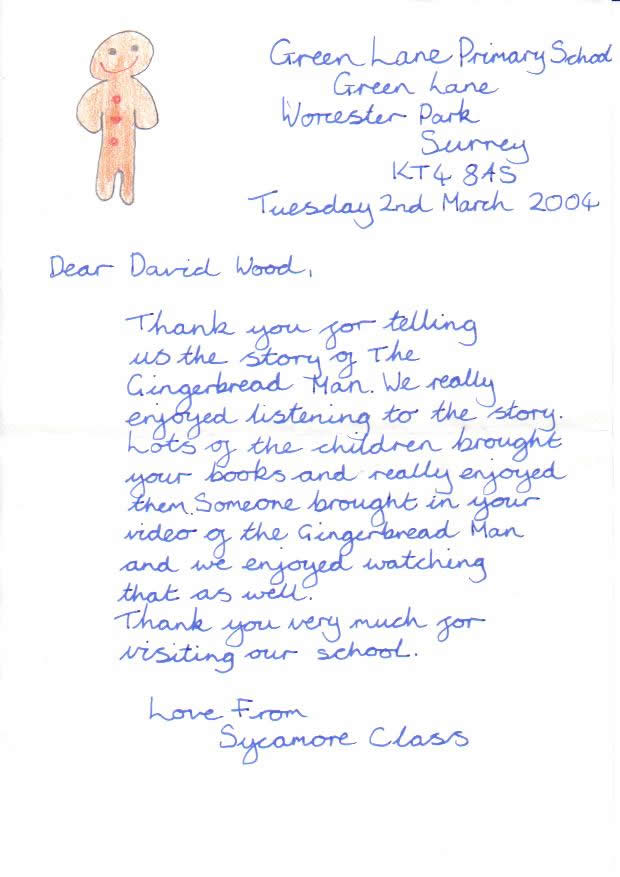 Green Lane Primary School
Green Lane
Worcester Park
Surrey
KT4 8AS
Tuesday 2nd March 2004
Dear David Wood,
Thank you for telling
us the story of The
Gingerbread Man. We really
enjoyed listening to the story.
Lots of the children brought
your books and really enjoyed
them. Someone brought in your
video of the Gingerbread Man
and we enjoyed watching
that as well.
Thank you very much for
visiting our school.
Love From
Sycamore Class